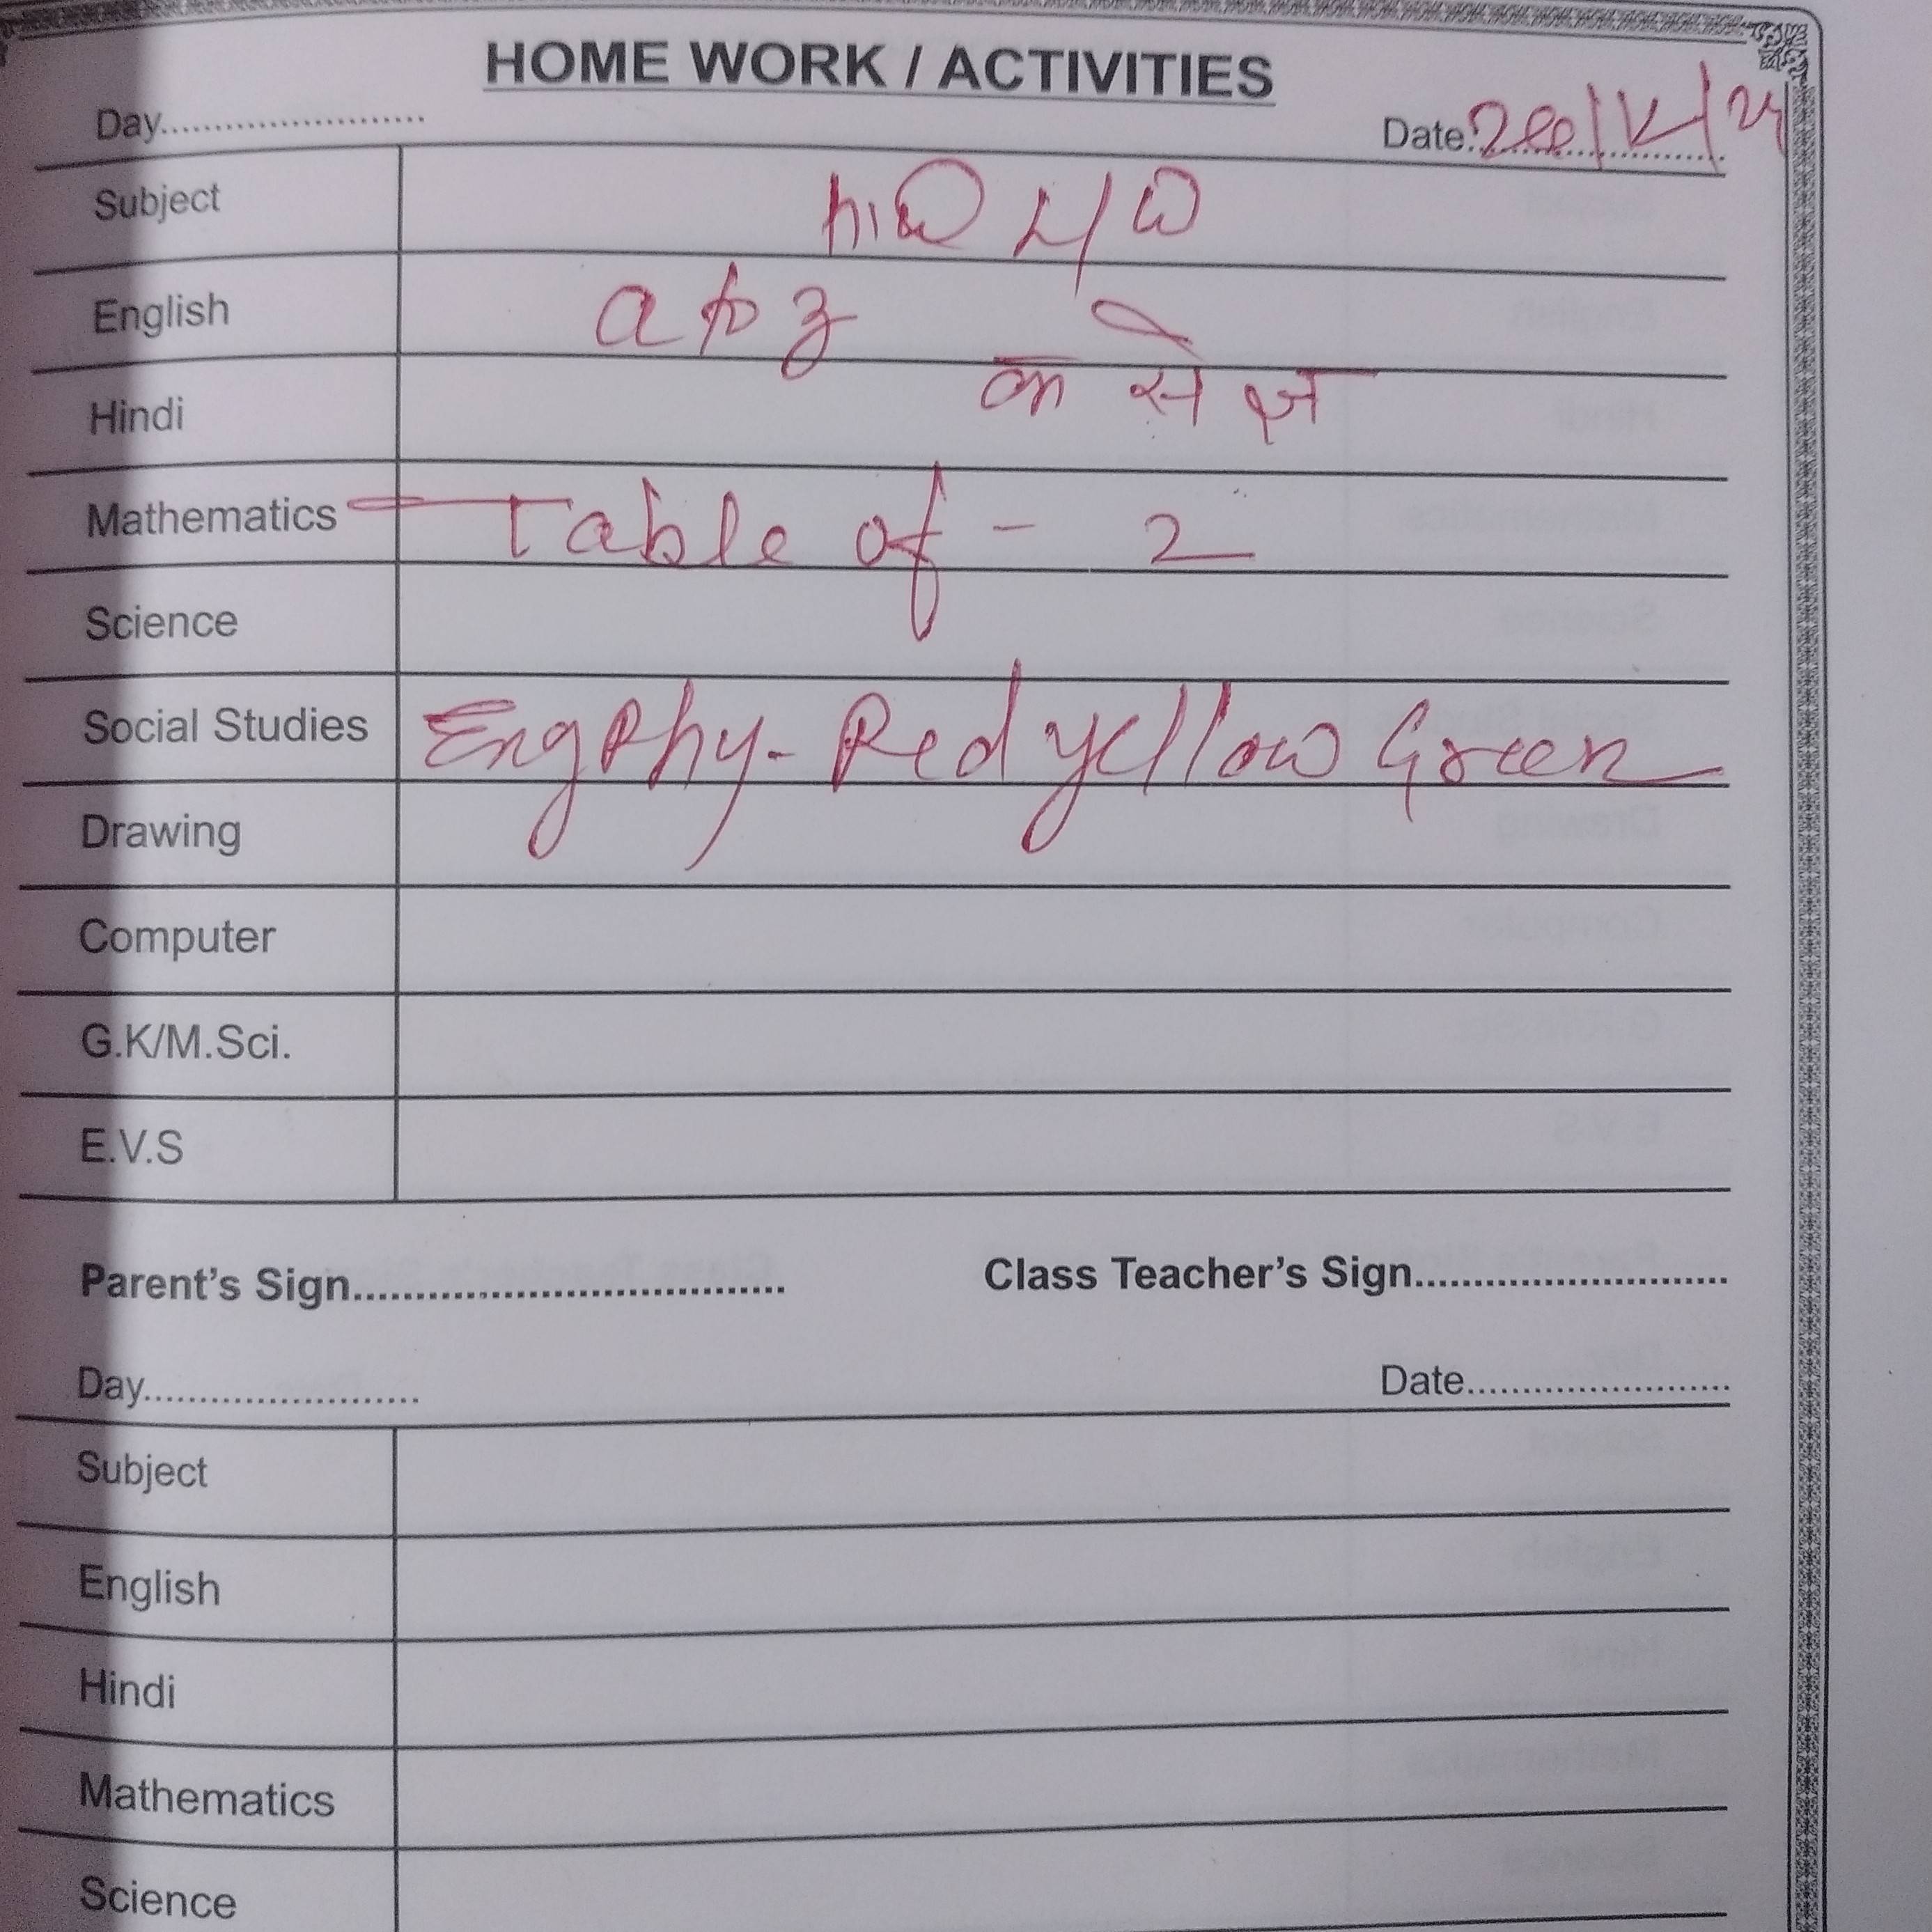 HOME WORK / ACTIVITIES
Day........................ Date.
Subject
English a to z
Hindi क से ज्ञ
Mathematics Table of - 2
Science
Social Studies Eng Phy - Red yellow Green
Drawing
Computer
G.K/M.Sci.
E.V.S
Parent's Sign.................................. Class Teacher's Sign...........................
Day......................... Date........................
Subject
English
Hindi
Mathematics
Science